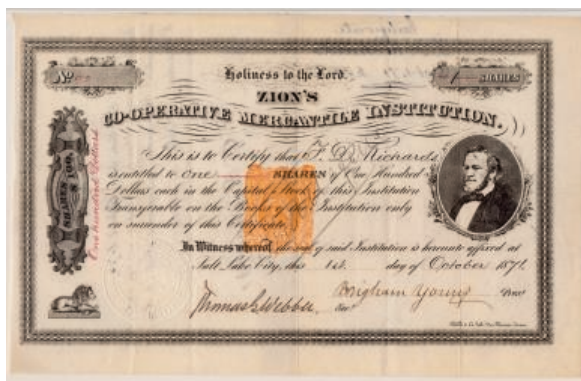 No.
Holiness to the Lord.
1 SHARES
ZION'S
CO-OPERATIVE MERCANTILE INSTITUTION.
This is to Certify that F. D. Richards
is entitled to one SHARES of One Hundred
Dollars each in the Capital Stock of this Institution
Transferable on the Books of the Institution only
on surrender of this Certificate.
In Witness whereof the seal of said Institution is hereunto affixed at
Salt Lake City, this 1st. day of October 1871.
Thomas G. Webber. Sec. Brigham Young Pres.
SHARES $100.
One hundred Dollars